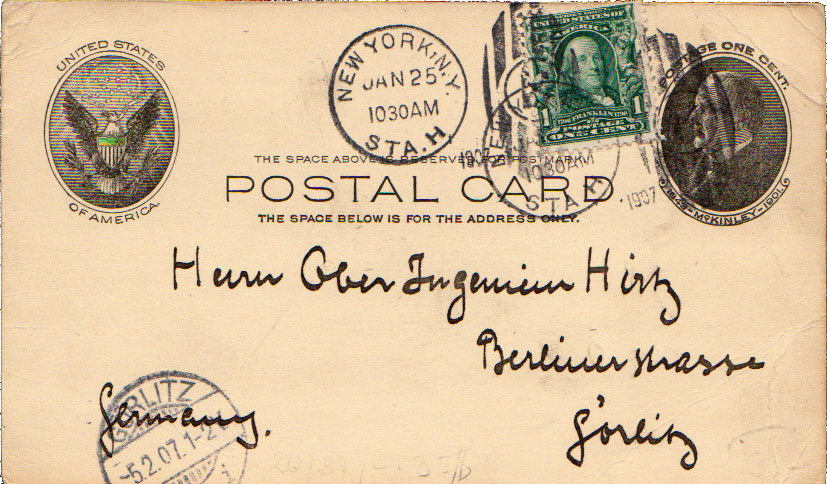 UNITED STATES
OF AMERICA.
NEW YORK, N.Y.
JAN 25
1030AM
STA. H.
UNITED STATES OF
AMERICA
1
1
1706 FRANKLIN 1790
POSTAGE
ONE CENT
POSTAGE ONE CENT.
1843-McKINLEY-1901.
NEW
1907
1030AM
STA. H.
1907
THE SPACE ABOVE IS RESERVED FOR POSTMARK.
POSTAL CARD
THE SPACE BELOW IS FOR THE ADDRESS ONLY.
Herrn Ober Ingenieur Hirtz
Berlinerstrasse
Görlitz
Germany.
GÖRLITZ
-5.2.07.1-2